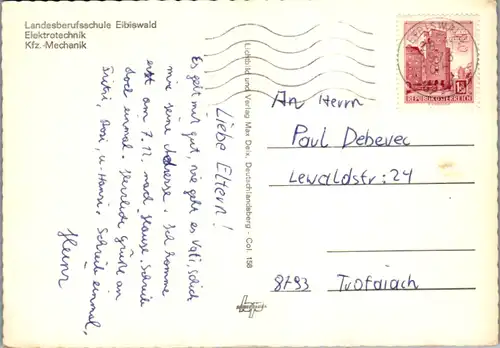 Landesberufsschule Eibiswald
Elektrotechnik
Kfz.-Mechanik
Liebe Eltern!
Es geht mir gut, wie geht es Vati, schick
mir seine Adresse. Ich komme
erst am 7.12. nach Hause. Schreib
doch einmal. Herzliche Grüße an
Trixi, Rosi, u. Hansi. Schreib einmal,
Heinz
Lichtbild und Verlag Max Deix, Deutschlandsberg - Col. 158
REPUBLIK ÖSTERREICH
An Herrn
Paul Debevec
Lewaldstr: 24
8793 Trofaiach